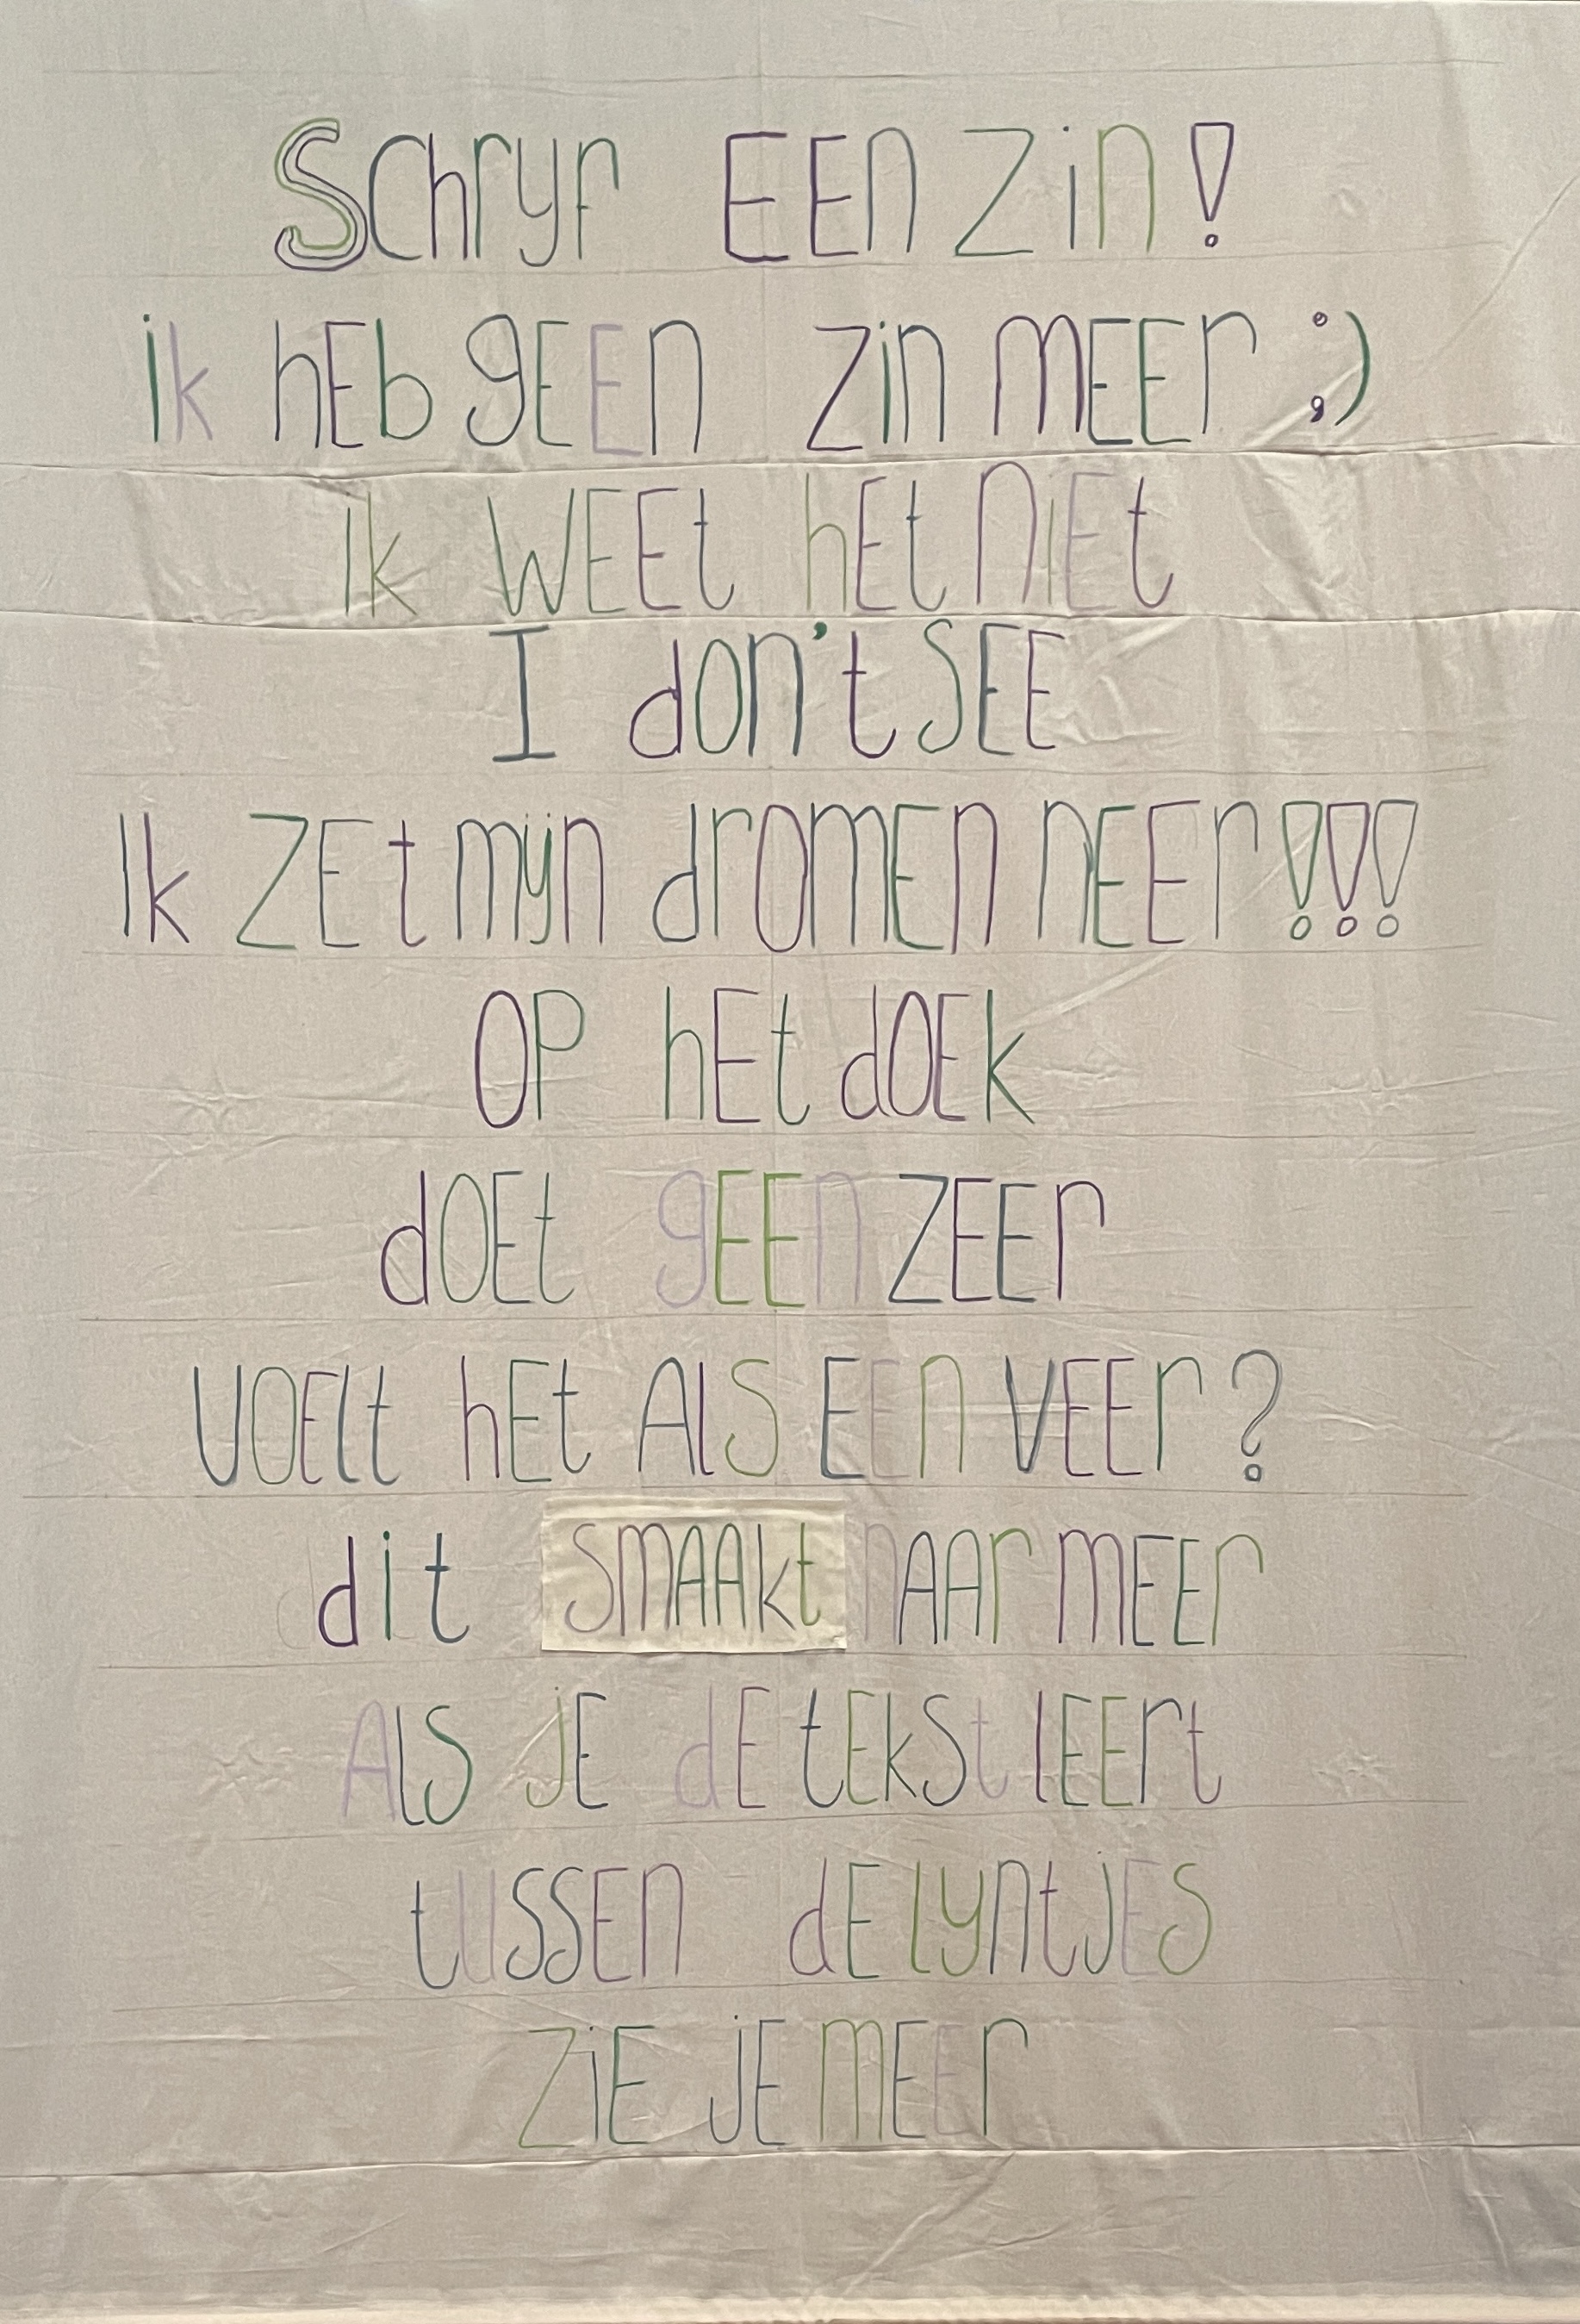 Schryf EEn Zin!
ik hEb gEEn Zin mEEr ;)
Ik WEEt hEt niEt
I don't SEE
Ik ZEt mijn dromEn nEEr!!!
OP hEt dOEk
dOEt gEEn ZEEr
VOElt hEt AlS EEn VEEr?
dit SmAAkt nAAr mEEr
AlS jE dE tEkSt lEErt
tUSSEn dE lyntjES
ZiE jE mEEr